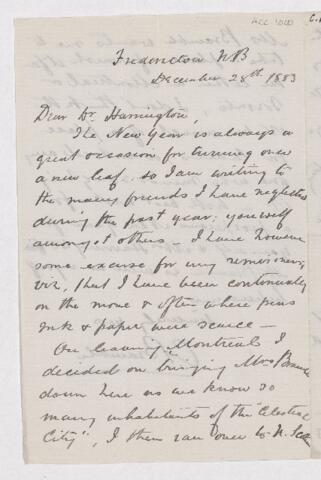 ACC 1000
Fredericton NB
December 28th 1883
Dear Dr. Harrington,
The New Year is always a
great occasion for turning over
a new leaf, so I am writing to
the many friends I have neglected
during the past year; yourself
amongst others - I have however
some excuse for my remissness,
viz, that I have been continually
on the move & often where pens
ink & paper were scarce -
On leaving Montreal I
decided on bringing Mrs
down here as we know so
many inhabitants of the "Celestial
City", I then ran over to N.